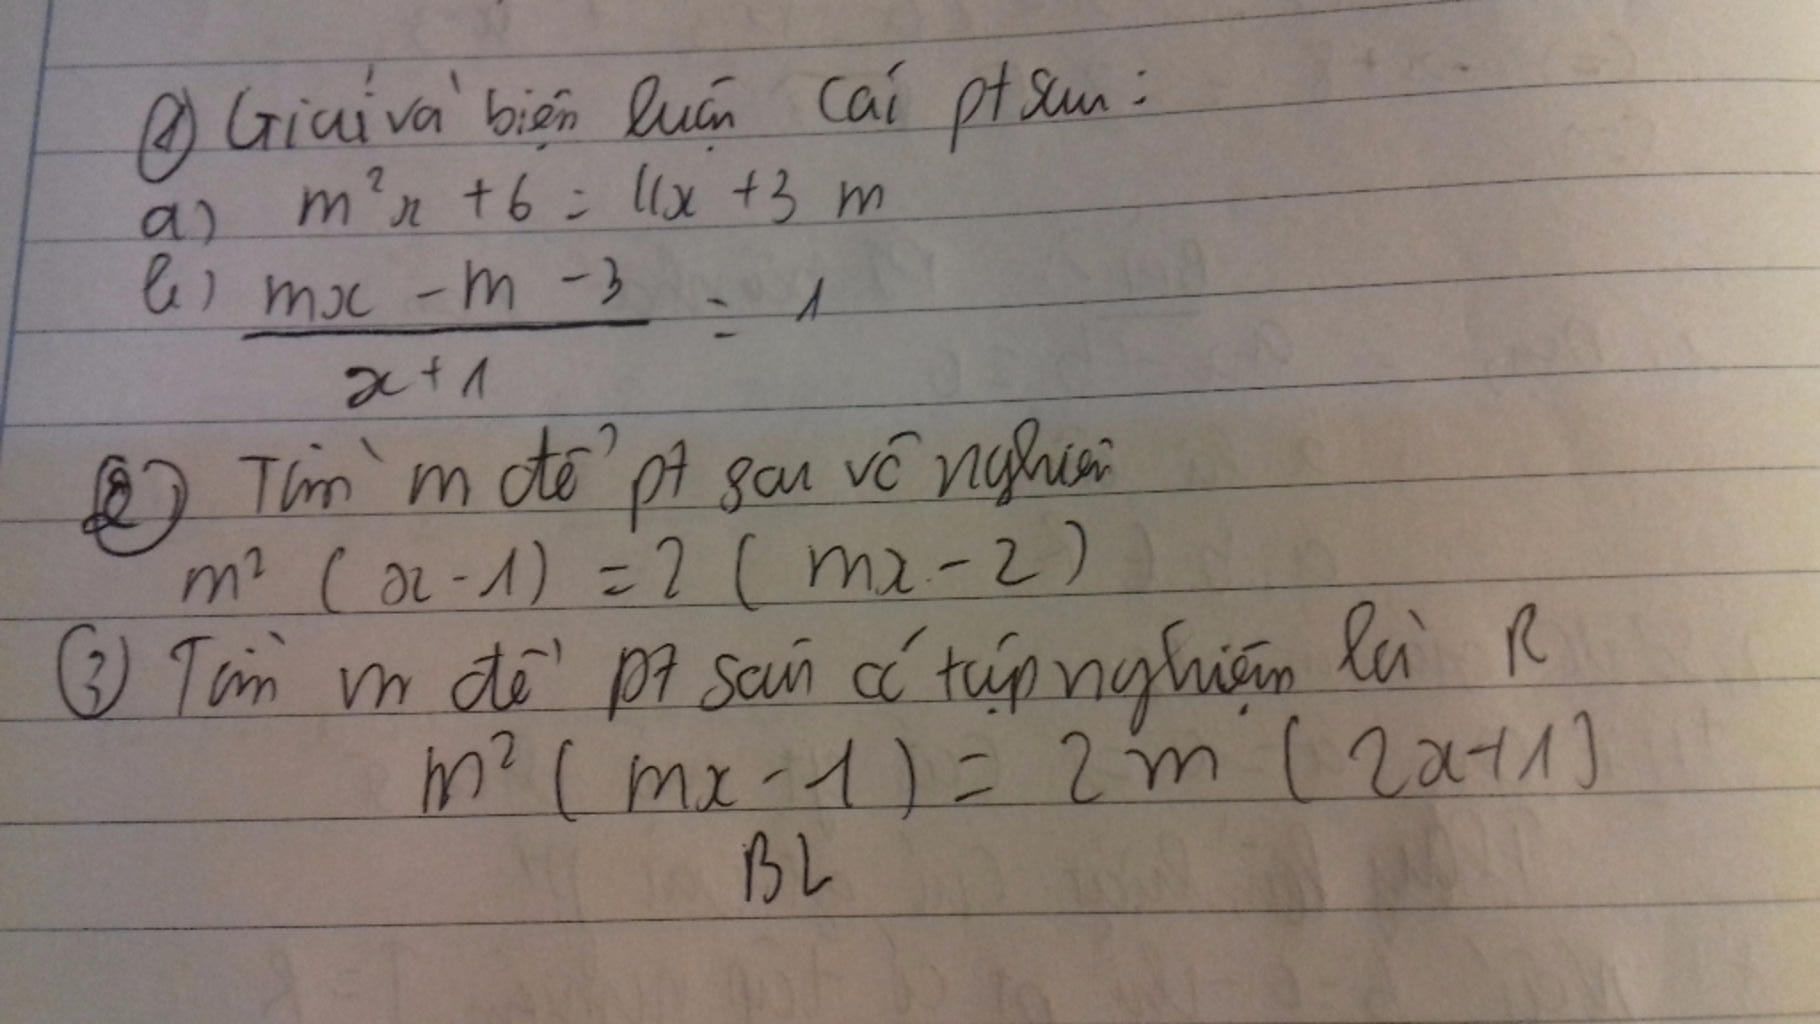 ① Giải và biện luận cái pt sau:
a) m²x + 6 = 4x + 3m
b) mx - m - 3 = 1
x + 1
② Tìm m để pt sau vô nghiệm
m² (x - 1) = 2 (mx - 2)
③ Tìm m để pt sau có tập nghiệm là R
m² (mx - 1) = 2m (2x + 1)
BL